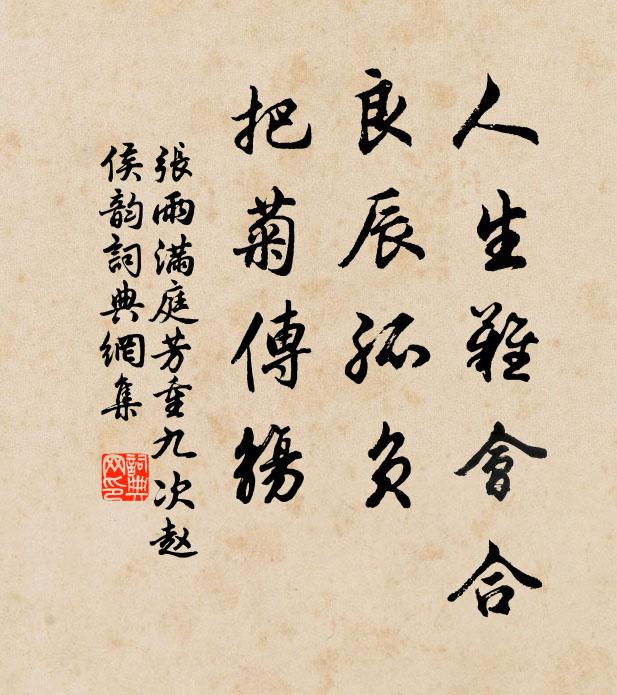 人生難會合
良辰孤负
把菊傳觴
張雨滿庭芳重九次赵
侯韵詞典網集
詞典网印